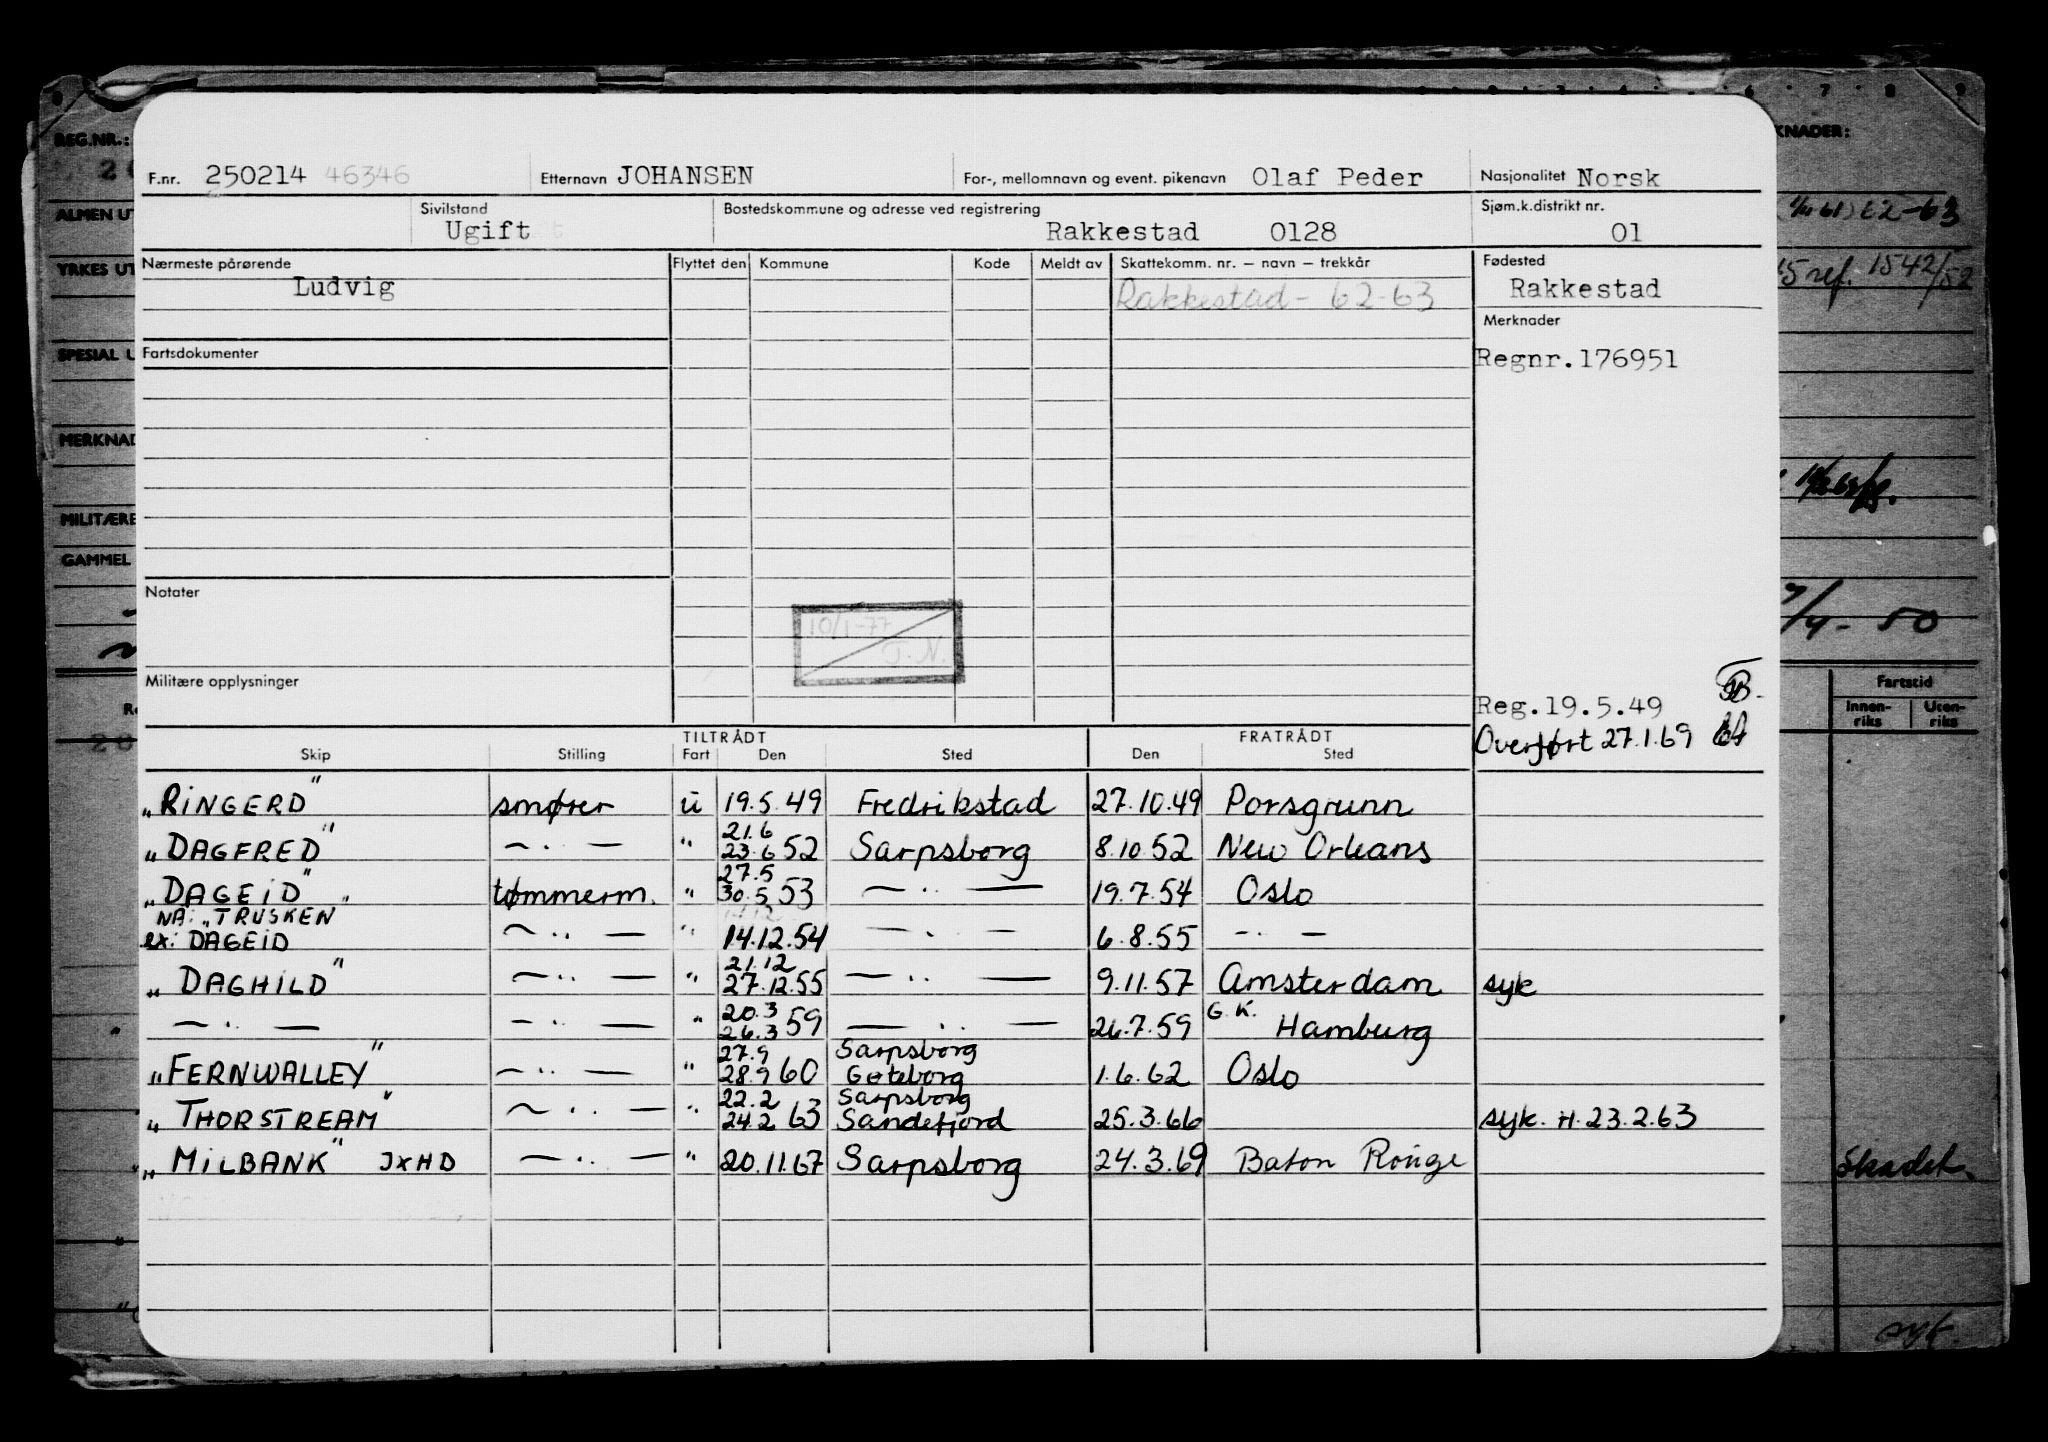 F.nr. 250214 46346 Etternavn JOHANSEN For-, mellomnavn og event. pikenavn Olaf Peder Nasjonalitet Norsk
Sivilstand Ugift Bostedskommune og adresse ved registrering Rakkestad 0128 Sjøm.k.distrikt nr. 01
Nærmeste pårørende Ludvig Flyttet den Kommune Kode Meldt av Skattekomm. nr. — navn — trekkår Fødested
Rakkestad - 62-63 Rakkestad
Merknader
Fartsdokumenter Regnr.176951
Notater
10/1-77 J.N.
Militære opplysninger
Reg.19.5.49
Overført 27.1.69
TILTRÅDT FRATRÅDT
Skip Stilling Fart Den Sted Den Sted
"RINGERD" smører u 19.5.49 Fredrikstad 27.10.49 Porsgrunn
"DAGFRED" — · — " 21.6 23.6 52 Sarpsborg 8.10.52 New Orleans
"DAGEID" tømmerm. " 27.5 30.5 53 — ·· — 19.7.54 Oslo
NA: "TRUSKEN"
ex: DAGEID — ·· — " 14.12.54 — · — 6.8.55 — · —
"DAGHILD" — ·· — " 21.12 27.12.55 — ·· — 9.11.57 Amsterdam syk
— · — — ·· — " 20.3 26.3 59 — ·· — 26.7.59 G.K. Hamburg
"FERNWALLEY" — ·· — " 27.9 28.9 60 Sarpsborg Gøteborg 1.6.62 Oslo
"THORSTREAM" — ·· — " 22.2 24.2 63 Sarpsborg Sandefjord 25.3.66 syk. H. 23.2.63
"MILBANK" JXHD — ·· — " 20.11.67 Sarpsborg 24.3.69 Baton Rouge
REG.NR.:
ALMEN UT
YRKES UT
SPESIAL U
MERKNAD
MILITÆRE
GAMMEL
KNADER:
62-63
15 ref. 1542/52
7/4-50
Fartstid
Innen-riks Uten-riks
Skadet.
syk.